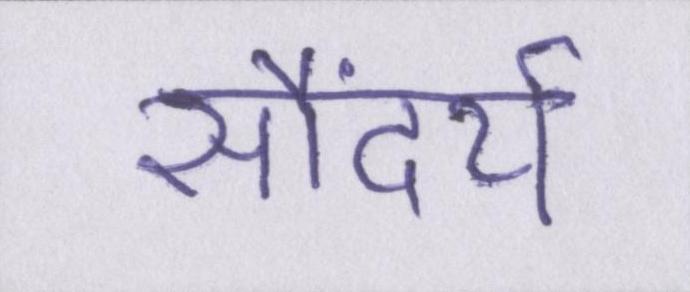 सौंदर्य